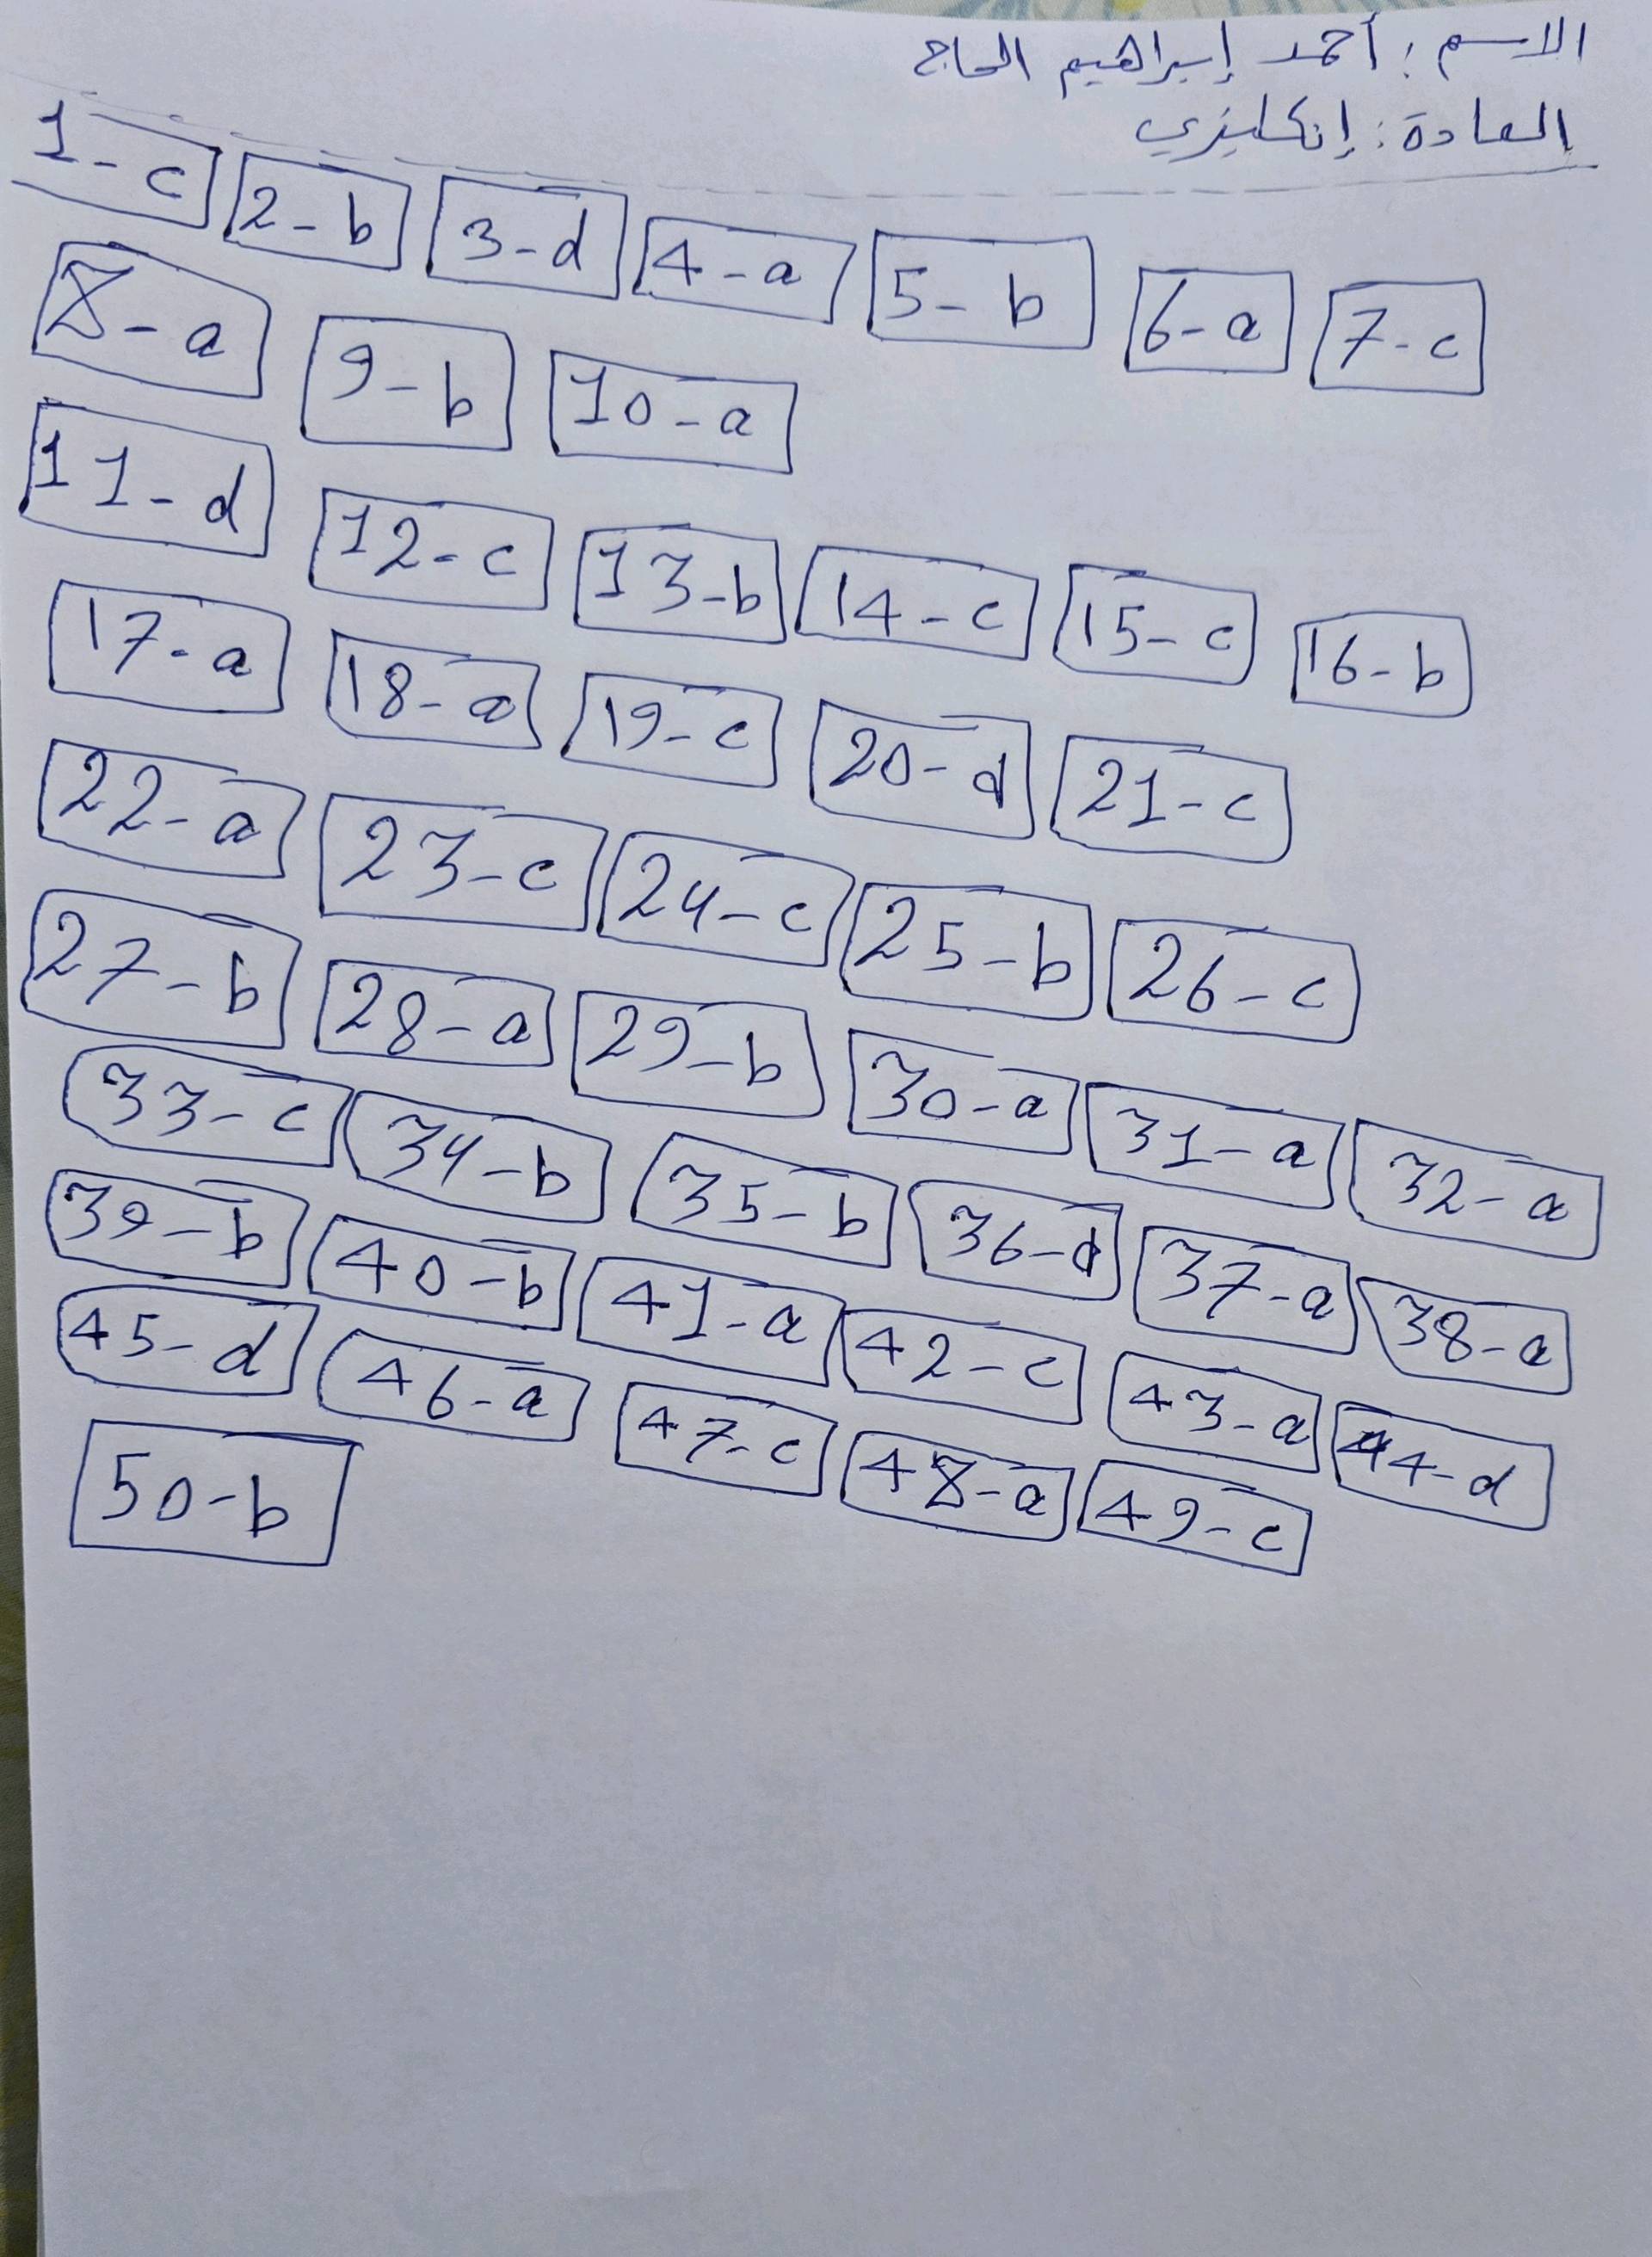 الاسم : أحمد إبراهيم الحاج
المادة : إنكليزي
1-c 2-b 3-d 4-a 5-b 6-a 7-c
8-a 9-b 10-a
11-d 12-c 13-b 14-c 15-c 16-b
17-a 18-a 19-c 20-d 21-c
22-a 23-c 24-c 25-b 26-c
27-b 28-a 29-b 30-a 31-a 32-a
33-c 34-b 35-b 36-d 37-a 38-a
39-b 40-b 41-a 42-c 43-a 44-d
45-d 46-a 47-c 48-a 49-c
50-b